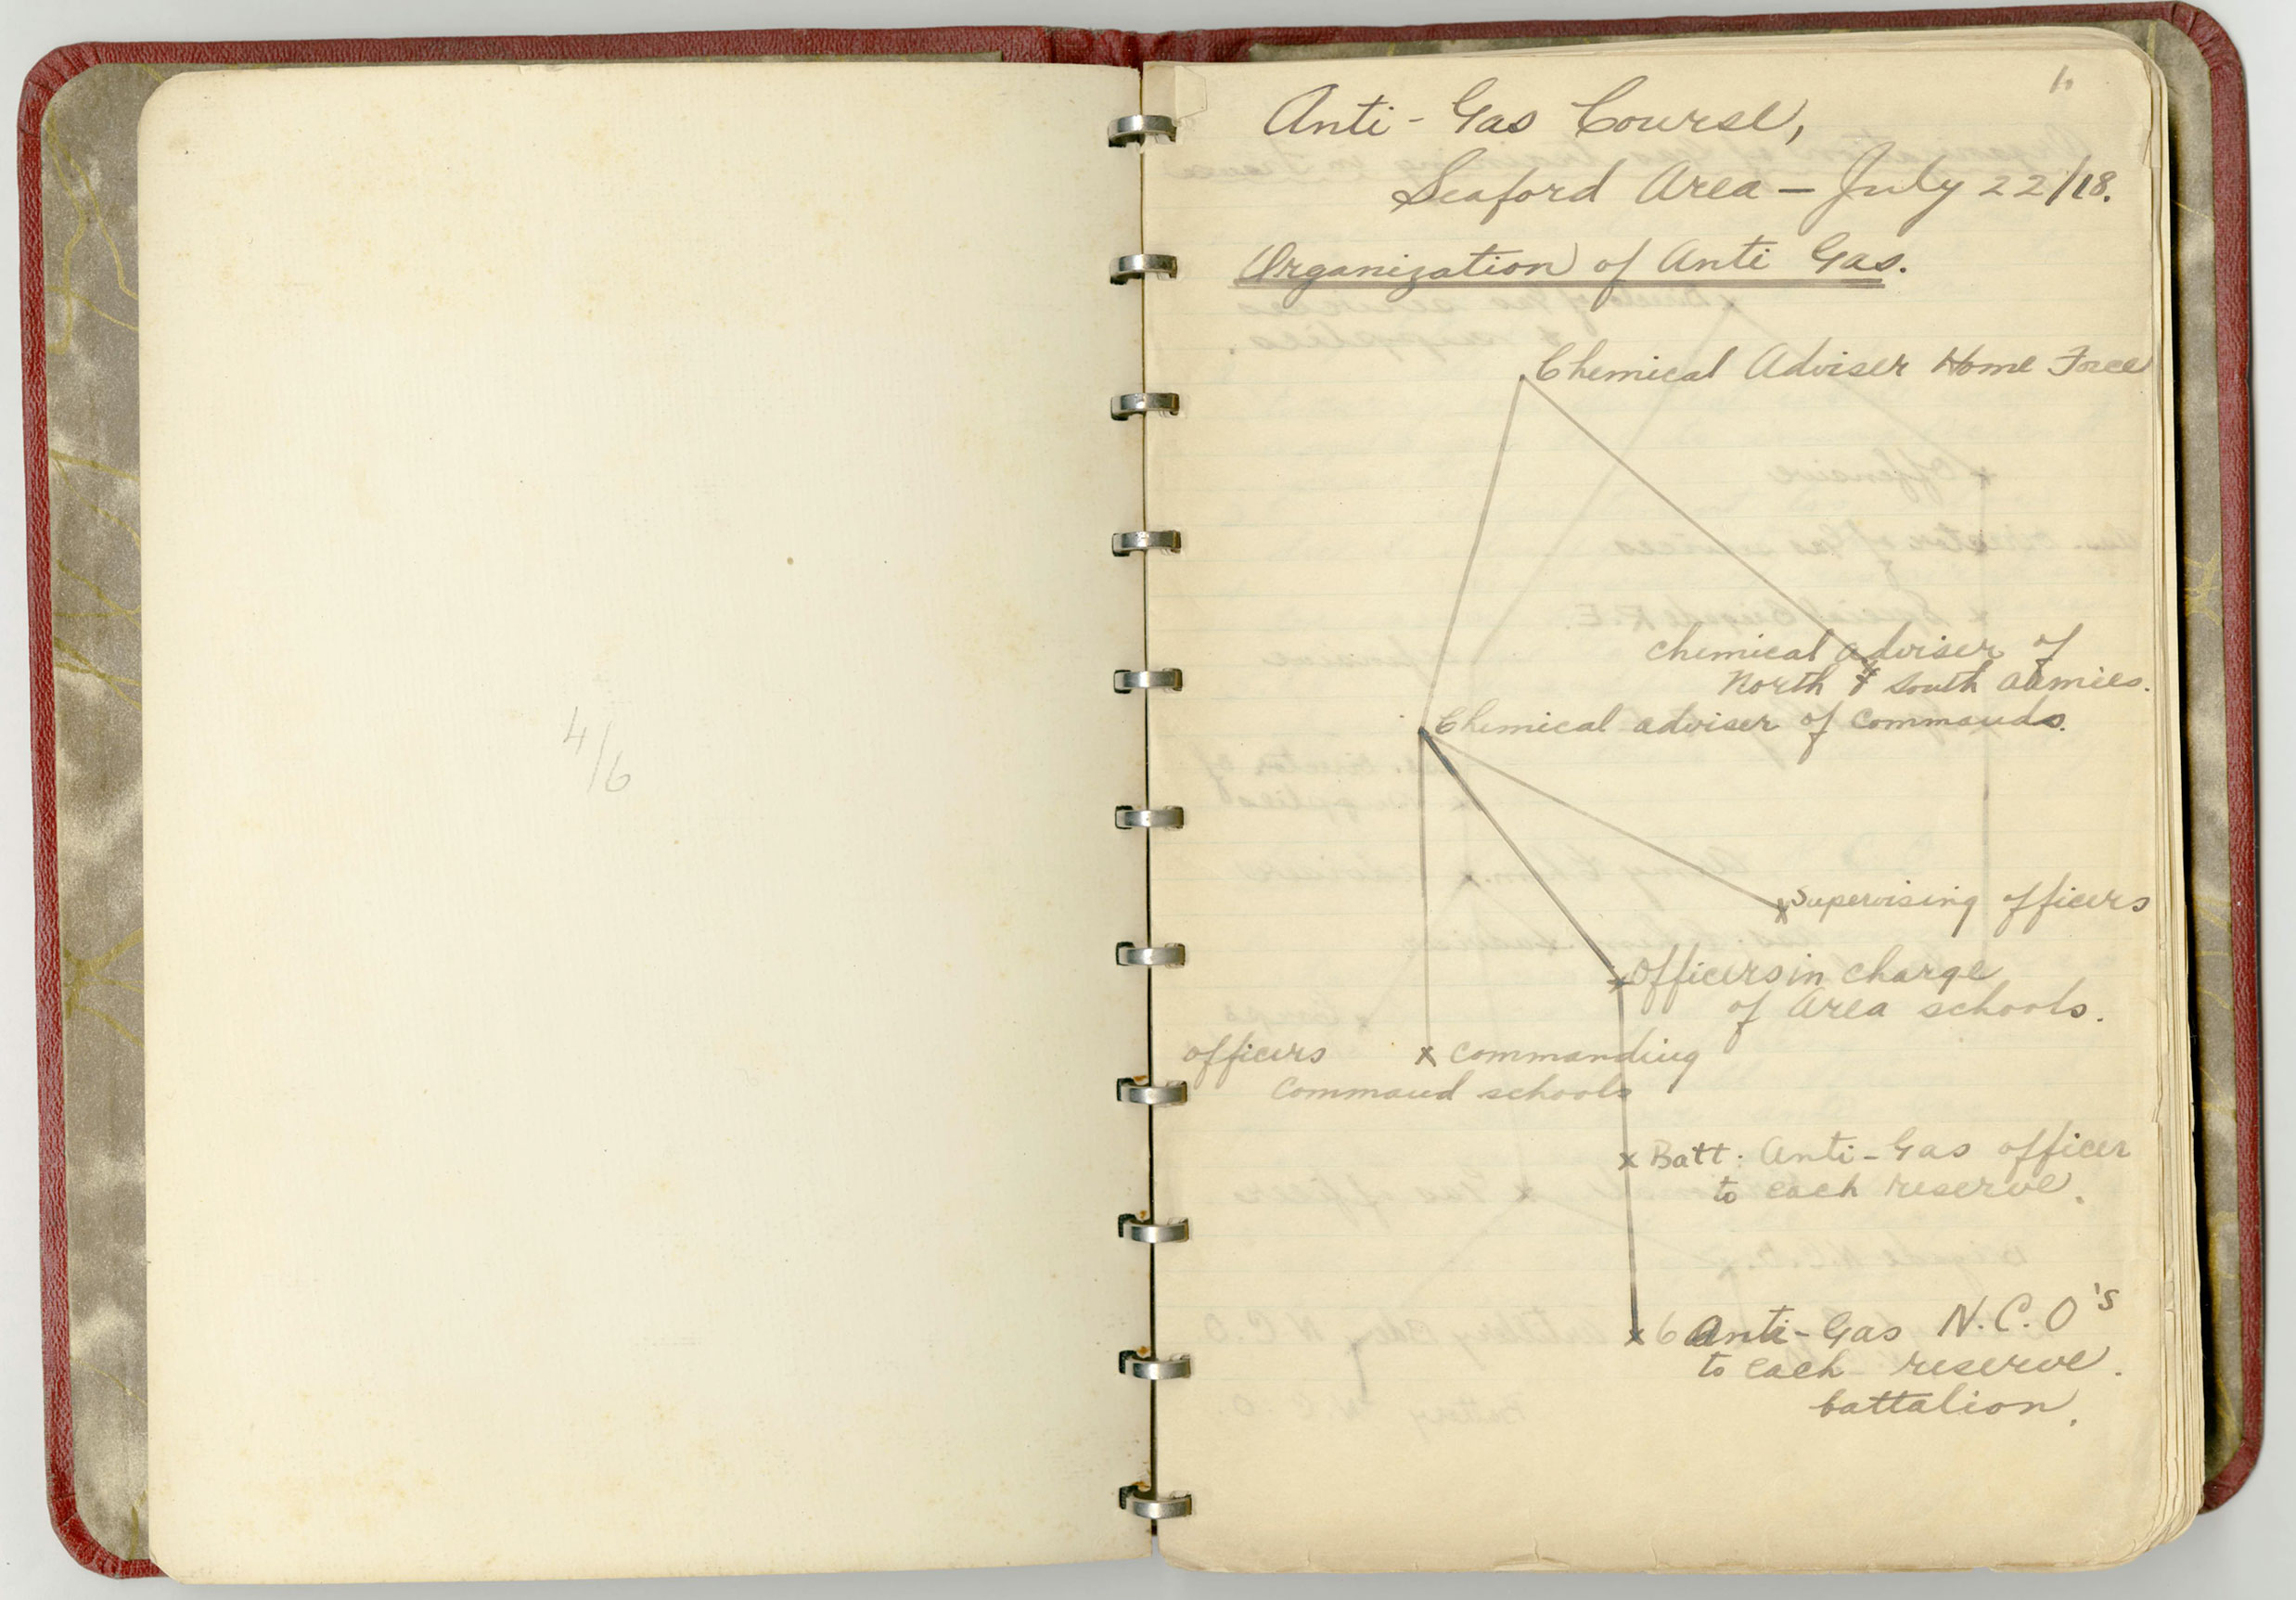 4/6
1.
Anti-Gas Course,
Seaford Area — July 22/18.
Organization of Anti Gas.
Chemical Adviser Home Force
Chemical adviser of
North & South Armies.
Chemical adviser of Commands.
Supervising officers
Officers in charge
of Area schools.
officers x commanding
Command schools
x Batt: Anti-Gas officer
to each reserve.
x 6 Anti-Gas N.C.O's
to each reserve.
battalion.